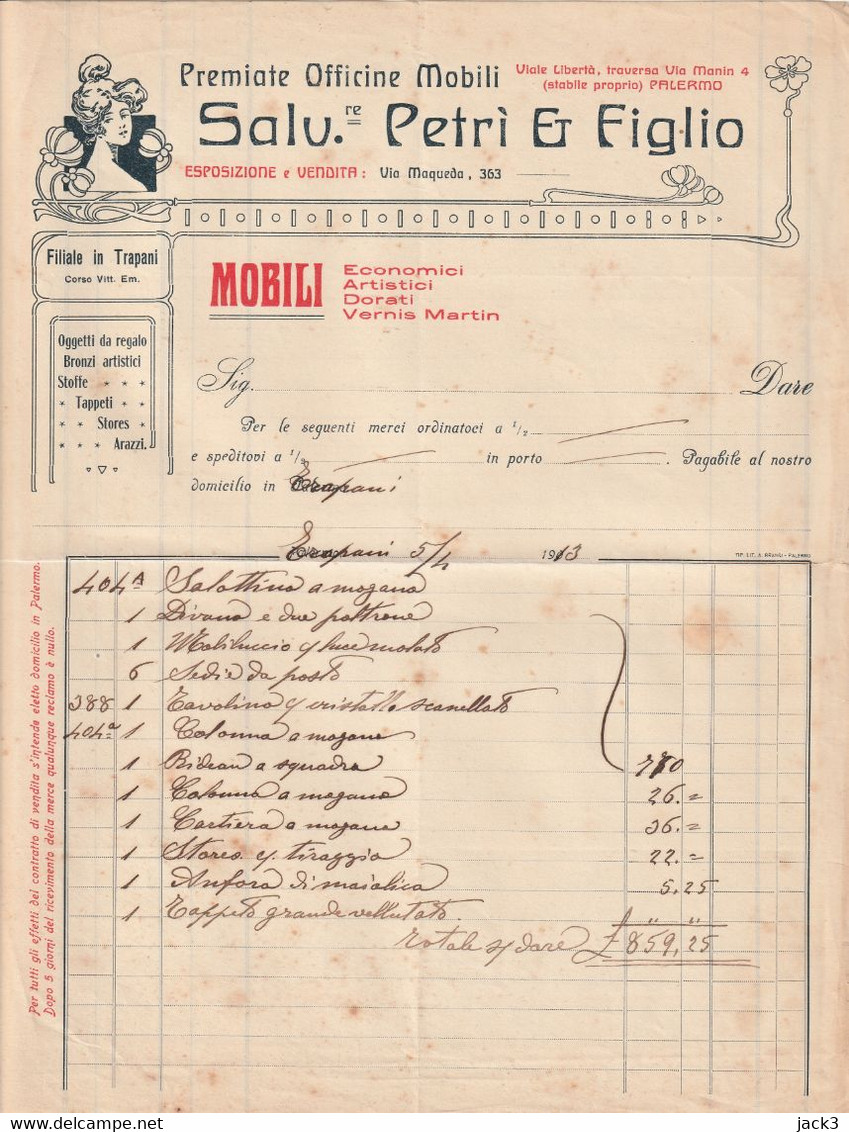 Premiate Officine Mobili
Viale Libertà, traversa Via Manin 4
(stabile proprio) PALERMO
Salv.re Petrì & Figlio
ESPOSIZIONE e VENDITA: Via Maqueda, 363
Filiale in Trapani
Corso Vitt. Em.
MOBILI
Economici
Artistici
Dorati
Vernis Martin
Oggetti da regalo
Bronzi artistici
Stoffe * * *
* Tappeti * *
* * Stores *
* * * Arazzi.
Sig. Dare
Per le seguenti merci ordinatoci a 1/2
e speditovi a 1/2 in porto . Pagabile al nostro
domicilio in Trapani
Trapani 5/4 1913
TIP. LIT. A. BRANGI - PALERMO
404 A Salottino a mogano
1 Divano e due poltrone
1 Mobiluccio c/ luce molato
6 Sedie da posto
388 1 Tavolino c/ cristallo scanellato
404 a 1 Colonna a mogano
1 Rideau a squadra 770
1 Colonna a mogano 26.=
1 Cartiera a mogano 36.=
1 Stores c/ tiraggio 22.=
1 Anfora di maiolica 5,25
1 Tappeto grande vellutato. " "
Totale s/ dare £ 859,25
Per tutti gli effetti del contratto di vendita s'intende eletto domicilio in Palermo.
Dopo 5 giorni del ricevimento della merce qualunque reclamo è nullo.
jack3